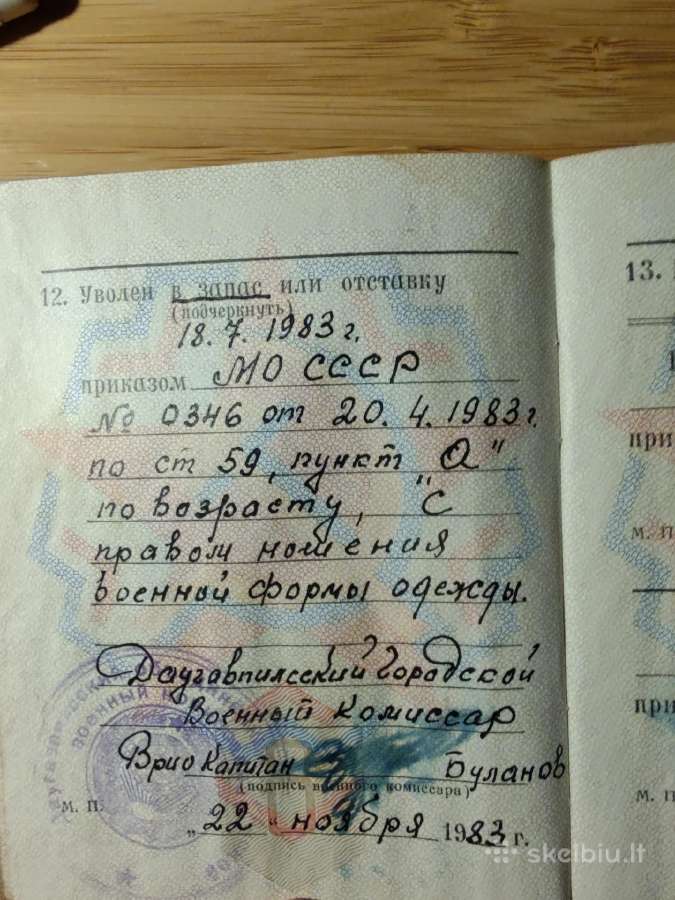 12. Уволен в запас или отставку
(подчеркнуть)
18.7.1983 г.
приказом МО СССР
№ 0346 от 20.4.1983 г.
по ст 59, пункт "А"
по возрасту, "С
правом ношения
военной формы одежды.
Даугавпилсский Городской
Военный Комиссар
Врио Капитан Буланов
(подпись военного комиссара)
м. п.
„22" ноября 1983 г.
13.
при
м. п
при
м. п
skelbiu.lt